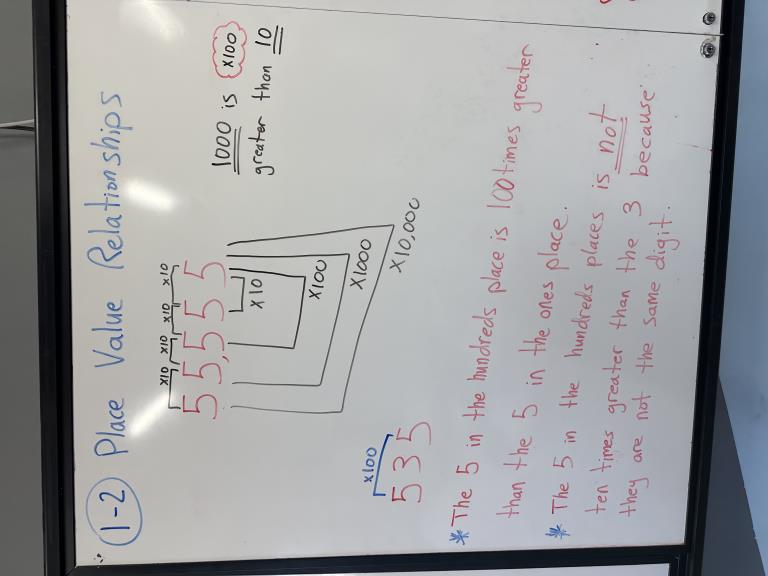 1-2 Place Value Relationships
x10 x10 x10 x10
55,555
x10
x100
x1000
x10,000
1000 is x100
greater than 10
x100
535
* The 5 in the hundreds place is 100 times greater
than the 5 in the ones place.
* The 5 in the hundreds places is not
ten times greater than the 3 because
they are not the same digit.